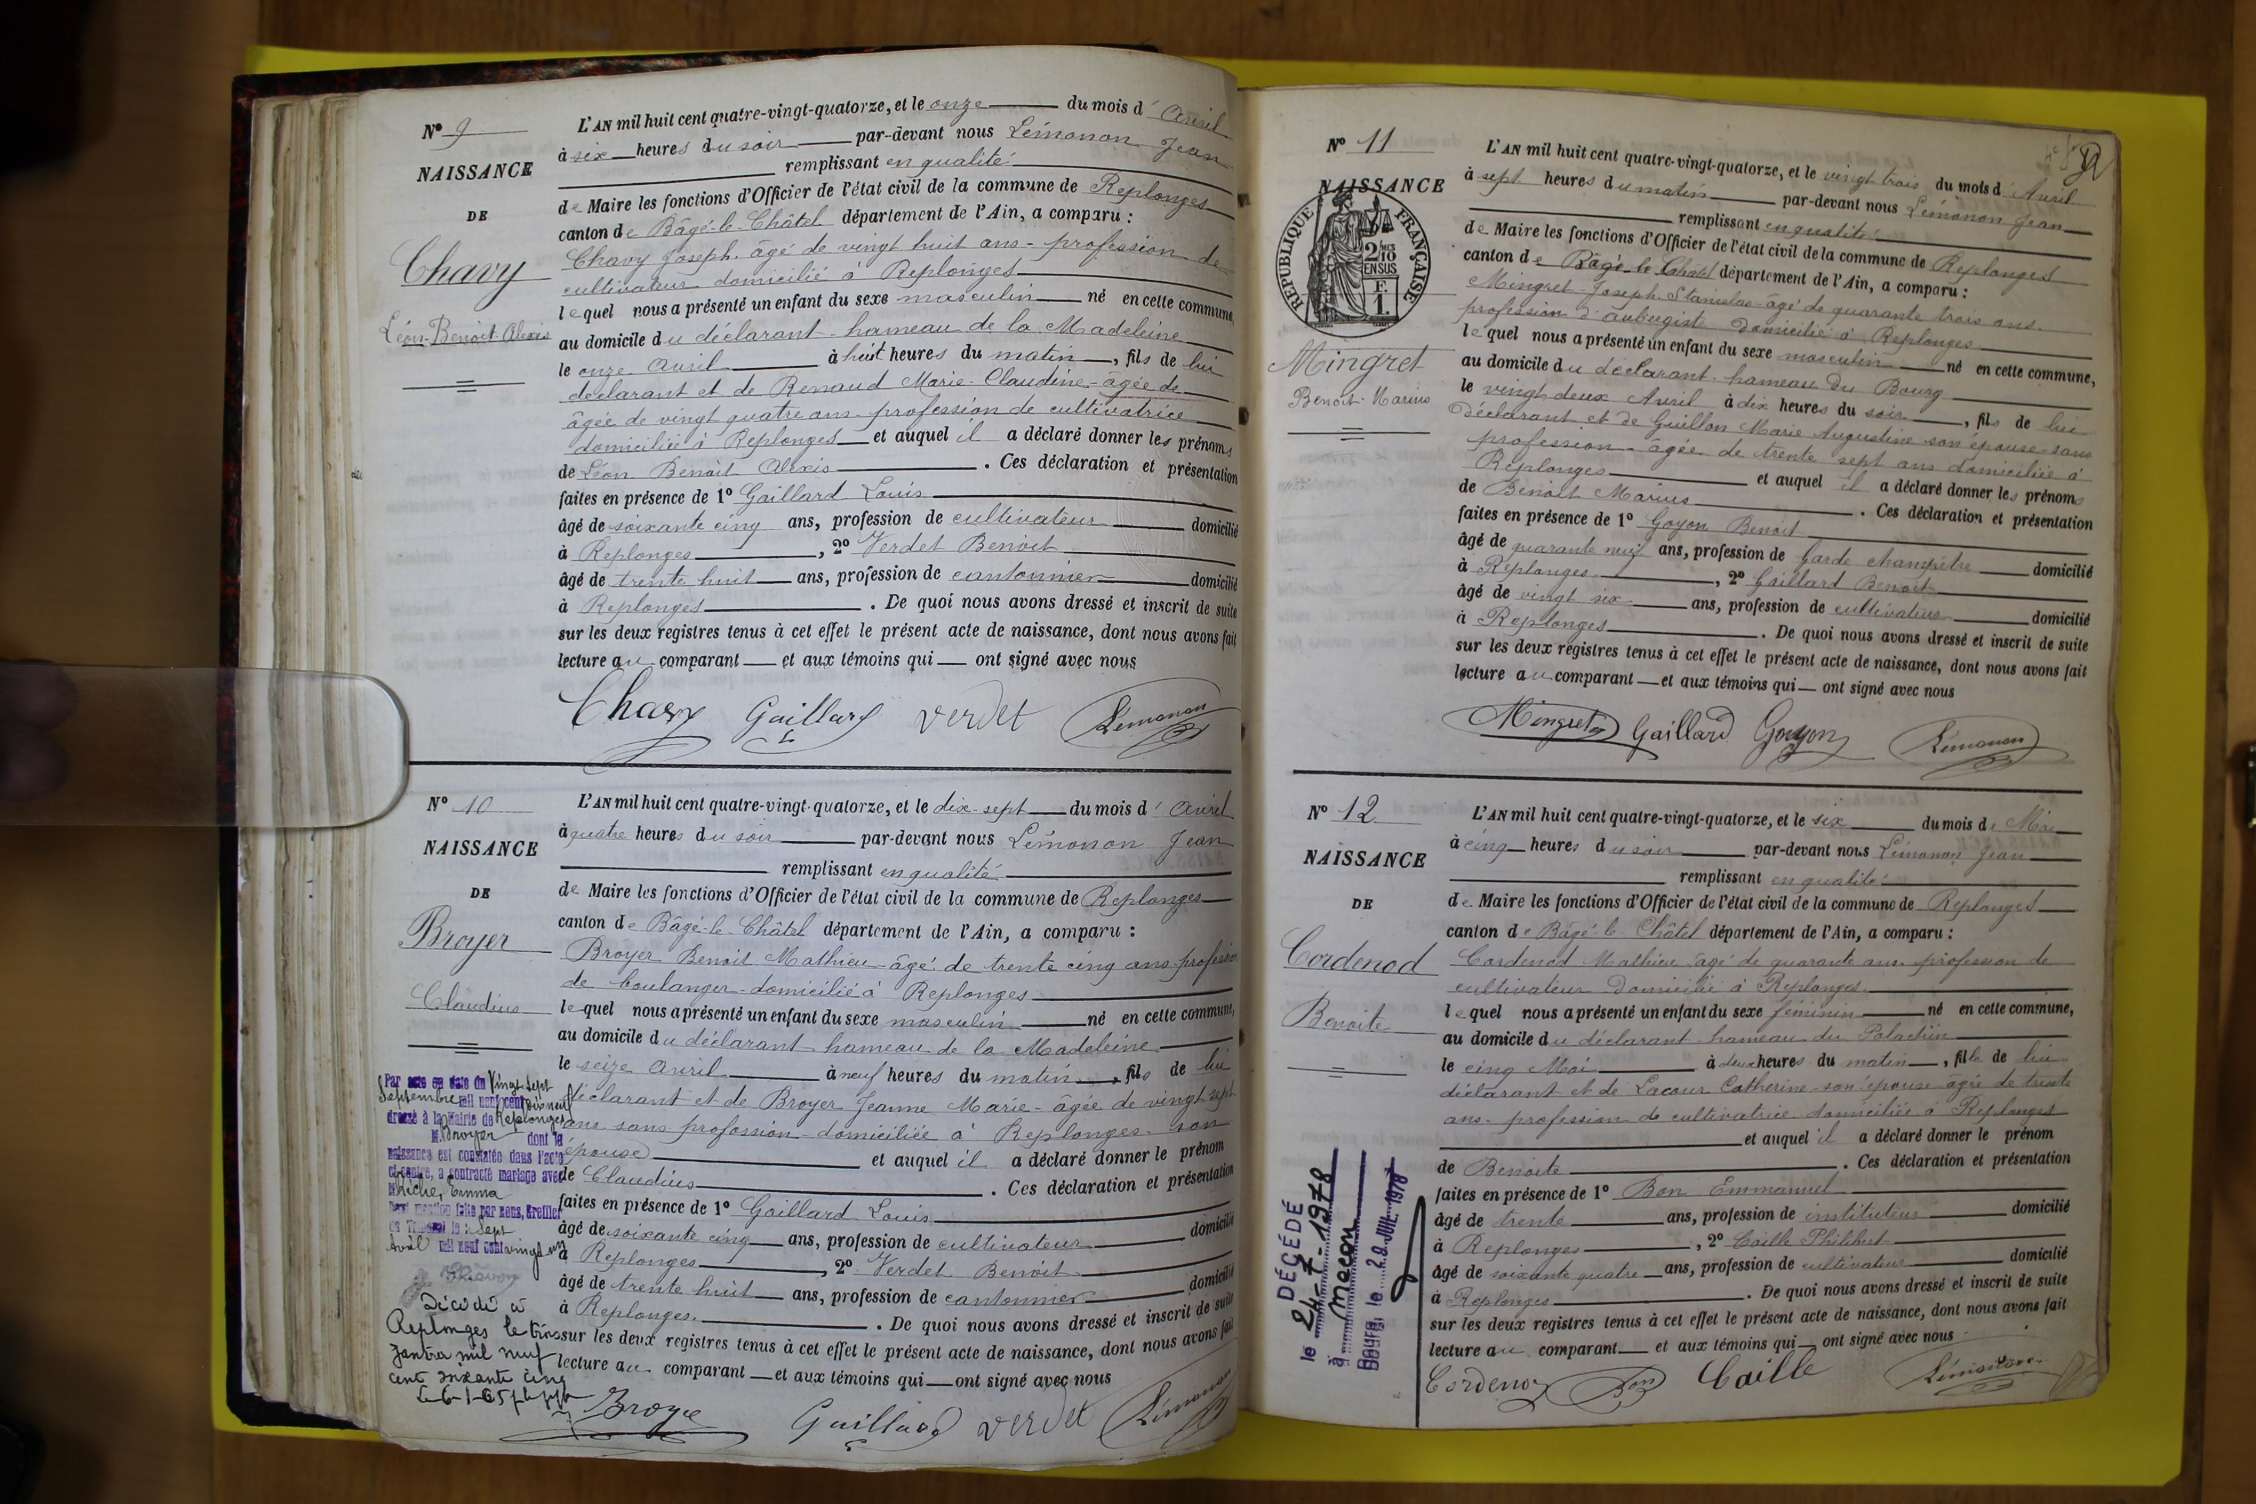 N° 9
NAISSANCE
DE
Chavy
Léon-Benoit-Alexis
L'AN mil huit cent quatre-vingt-quatorze, et le onze du mois d'Avril
à six heures du soir par-devant nous Lémonon Jean
remplissant en qualité
de Maire les fonctions d'Officier de l'état civil de la commune de Replonges
canton de Bâgé-le-Châtel département de l'Ain, a comparu :
Chavy Joseph. âgé de vingt huit ans - profession de
cultivateur domicilié à Replonges
lequel nous a présenté un enfant du sexe masculin né en cette commune,
au domicile du déclarant - hameau de la Madeleine
le onze Avril à huit heures du matin, fils de lui
déclarant et de Renaud Marie-Claudine - âgée de
âgée de vingt quatre ans - profession de cultivatrice
domiciliée à Replonges et auquel il a déclaré donner les prénoms
de Léon Benoit Alexis. Ces déclaration et présentation
faites en présence de 1° Gaillard Louis
âgé de soixante cinq ans, profession de cultivateur domicilié
à Replonges, 2° Verdet Benoit
âgé de trente huit ans, profession de cantonnier domicilié
à Replonges. De quoi nous avons dressé et inscrit de suite
sur les deux registres tenus à cet effet le présent acte de naissance, dont nous avons fait
lecture au comparant et aux témoins qui ont signé avec nous
Chavy Gaillard L Verdet Lémonon
N° 10
NAISSANCE
DE
Broyer
Claudius
L'AN mil huit cent quatre-vingt-quatorze, et le dix-sept du mois d'Avril
à quatre heures du soir par-devant nous Lémonon Jean
remplissant en qualité
de Maire les fonctions d'Officier de l'état civil de la commune de Replonges
canton de Bâgé-le-Châtel département de l'Ain, a comparu :
Broyer Benoit Mathieu - âgé de trente cinq ans - profession
de boulanger - domicilié à Replonges
lequel nous a présenté un enfant du sexe masculin né en cette commune,
au domicile du déclarant hameau de la Madeleine
le seize Avril à neuf heures du matin, fils de lui
déclarant et de Broyer Jeanne Marie - âgée de vingt sept
ans sans profession - domiciliée à Replonges - son
épouse et auquel il a déclaré donner le prénom
de Claudius. Ces déclaration et présentation
faites en présence de 1° Gaillard Louis
âgé de soixante cinq ans, profession de cultivateur domicilié
à Replonges, 2° Verdet Benoit
âgé de trente huit ans, profession de cantonnier domicilié
à Replonges. De quoi nous avons dressé et inscrit de suite
sur les deux registres tenus à cet effet le présent acte de naissance, dont nous avons fait
lecture au comparant et aux témoins qui ont signé avec nous
Broyer Gaillard Verdet Lémonon
Par acte en date du Vingt Sept
Septembre mil neuf cent dix neuf
dressé à la Mairie de Replonges
M. Broyer dont la
naissance est constatée dans l'acte
ci-contre, a contracté mariage avec
Emma
mention faite par nous, Greffier
du Tribunal le Sept
Avril mil neuf cent vingt un
Décédé à
Replonges le trois
Janvier mil neuf
cent soixante cinq
Le 6-1-65
N° 11
NAISSANCE
RÉPUBLIQUE FRANÇAISE
2/10 EN SUS
F. 1.
Mingret
Benoit-Marius
L'AN mil huit cent quatre-vingt-quatorze, et le vingt trois du mois d'Avril
à sept heures du matin par-devant nous Lémonon Jean
remplissant en qualité
de Maire les fonctions d'Officier de l'état civil de la commune de Replonges
canton de Bâgé-le-Châtel département de l'Ain, a comparu :
Mingret Joseph Stanislas - âgé de quarante trois ans.
profession d'aubergiste domicilié à Replonges
lequel nous a présenté un enfant du sexe masculin né en cette commune,
au domicile du déclarant - hameau du Bourg
le vingt deux Avril à dix heures du soir, fils de lui
déclarant et de Guillon Marie Augustine son épouse sans
profession - âgée de trente sept ans domiciliée à
Replonges et auquel il a déclaré donner les prénoms
de Benoit Marius. Ces déclaration et présentation
faites en présence de 1° Goyon Benoit
âgé de quarante neuf ans, profession de Garde champêtre domicilié
à Replonges, 2° Gaillard Benoit
âgé de vingt six ans, profession de cultivateur domicilié
à Replonges. De quoi nous avons dressé et inscrit de suite
sur les deux registres tenus à cet effet le présent acte de naissance, dont nous avons fait
lecture au comparant et aux témoins qui ont signé avec nous
Mingret Gaillard Goyon Lémonon
N° 12
NAISSANCE
DE
Cordenod
Benoite
L'AN mil huit cent quatre-vingt-quatorze, et le six du mois de Mai
à cinq heures du soir par-devant nous Lémonon Jean
remplissant en qualité
de Maire les fonctions d'Officier de l'état civil de la commune de Replonges
canton de Bâgé-le-Châtel département de l'Ain, a comparu :
Cordenod Mathieu âgé de quarante ans - profession de
cultivateur domicilié à Replonges
lequel nous a présenté un enfant du sexe féminin né en cette commune,
au domicile du déclarant hameau du
le cinq Mai à deux heures du matin, fille de lui
déclarant et de Lacour Catherine son épouse âgée de trente
ans - profession de cultivatrice domiciliée à Replonges
et auquel il a déclaré donner le prénom
de Benoite. Ces déclaration et présentation
faites en présence de 1° Bon Emmanuel
âgé de trente ans, profession de instituteur domicilié
à Replonges, 2° Caille Philibert
âgé de soixante quatre ans, profession de cultivateur domicilié
à Replonges. De quoi nous avons dressé et inscrit de suite
sur les deux registres tenus à cet effet le présent acte de naissance, dont nous avons fait
lecture au comparant et aux témoins qui ont signé avec nous
Cordenod Bon Caille Lémonon
DÉCÉDÉ
le 24-7-1978
à Macon
Bourg, le 28 JUIL 1978